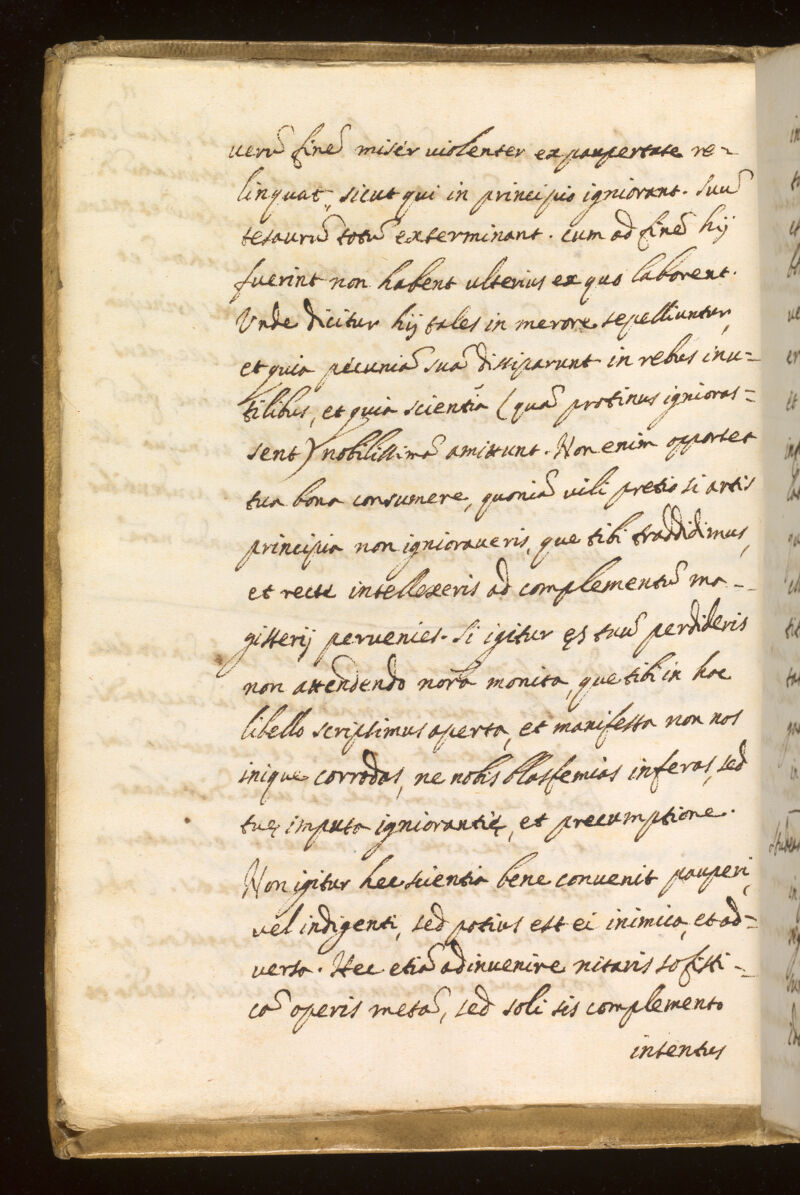 verũ finẽ miser violenter ex paupertate re=
linquat, sicut qui in principio igniorant. Suũ
tesaurũ totũ exterminant. cum ad finẽ hij
fuerint non habent ulterius ex quo laborent.
Unde dicitur hij tales in merore sepelliuntur,
et quia pecuniã suã dissiparunt in rebus inu=
tilibus, et quia scientia (quã protinus ignioras=
sent) nobilissimã amittunt. Non enim opportet
tua bona consumere, quoniã vili pretio si artis
principia non ignioraveris, que tibi traddidimus,
et recte intellexeris ad complementũ ma-
gisterij pervenies. Si igitur ęs tuũ perdideris
non attendendo nõra monita, que tibi in hoc
libello scripsimus aperta, et manifesta non nos
inique corrodas, ne nobis blasfemias inferas, sed
tuę imputa igniorantię, et precumptione.
Non igitur hec scientia bene convenit pauperi,
vel indigenti, sed potius est ei inimica, et ad=
versa. Nec etiã adinvenire nitaris sofisti-
cã operis metã, sed soli sis complemento
intentus